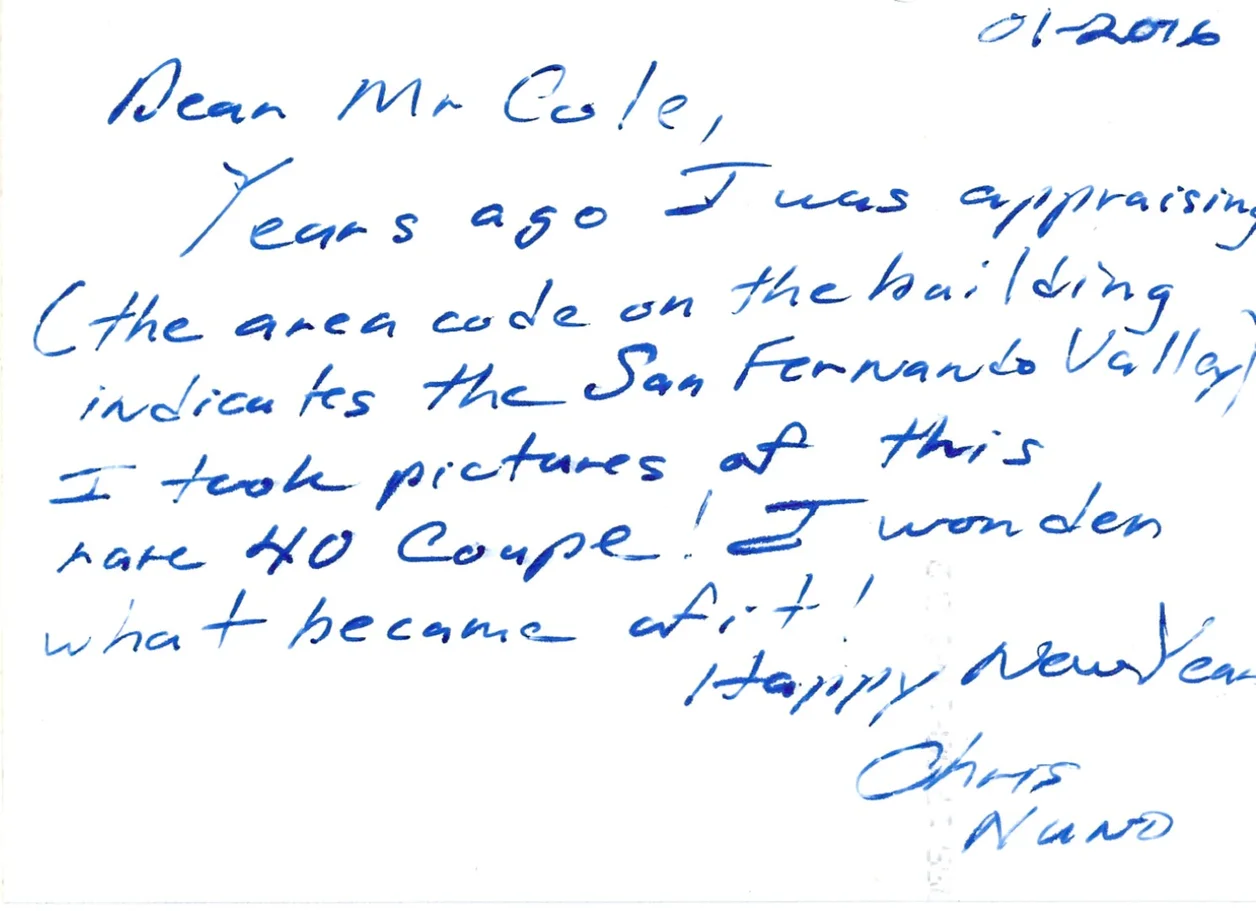 01-2016
Dear Mr Cole,
Years ago I was appraising
(the area code on the building
indicates the San Fernando Valley)
I took pictures of this
rare 40 Coupe! I wonder
what became of it!
Happy New Year
Chris
Nuno